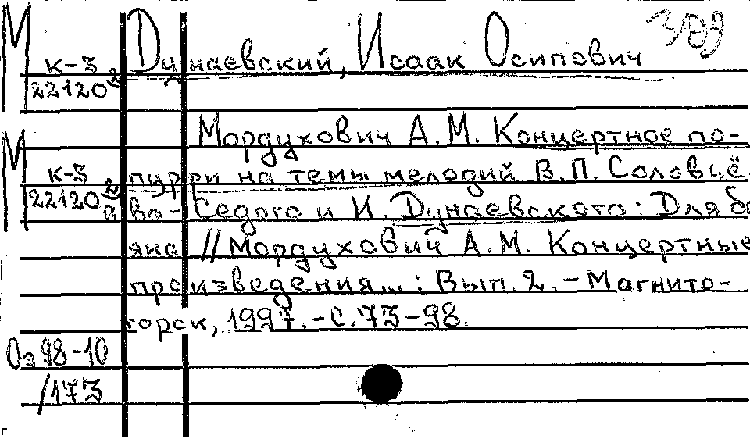 М Дунаевский, Исаак Осипович
к-3
22120
М Мордухович А.М. Концертное по-
к-3 пурри на темы мелодий В.П. Соловьё-
22120 ва-Седого и И. Дунаевского: Для ба-
яна // Мордухович А.М. Концертные
произведения...: Вып. 2. - Магнито-
горск, 1997. - С. 73-98.
Оз 98-10
/173